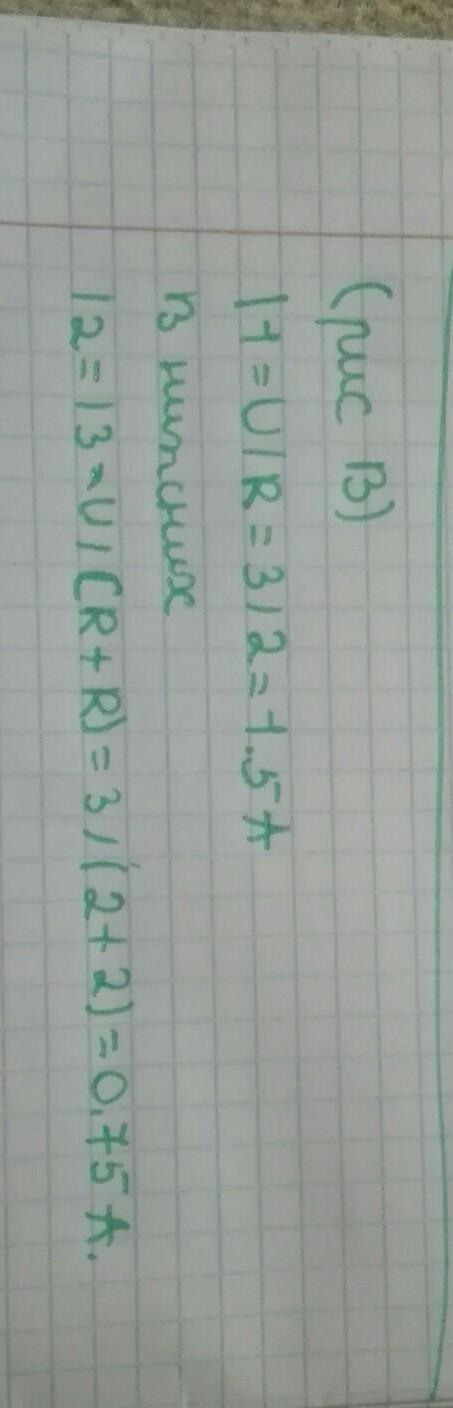 (рис В)
I1=U/R=3/2=1.5A
В нижних
I2=I3=U/(R+R)=3/(2+2)=0.75A.